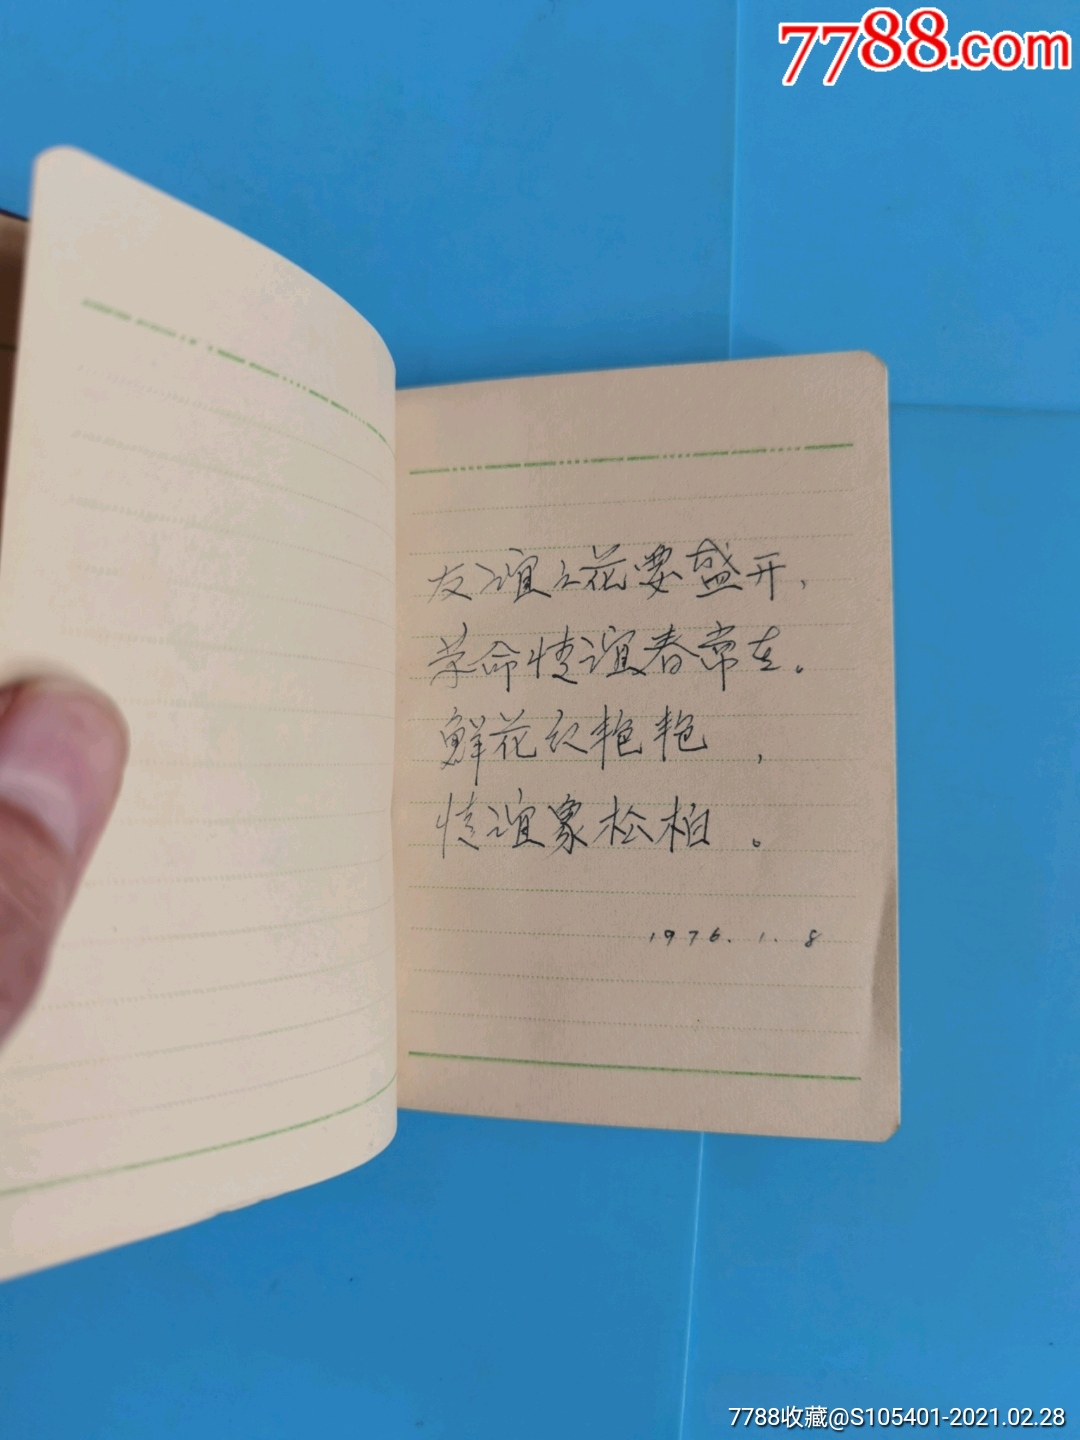 7788.com
友谊之花要盛开，
革命情谊春常在。
鲜花红艳艳，
情谊象松柏。
1976.1.8
7788收藏@S105401-2021.02.28